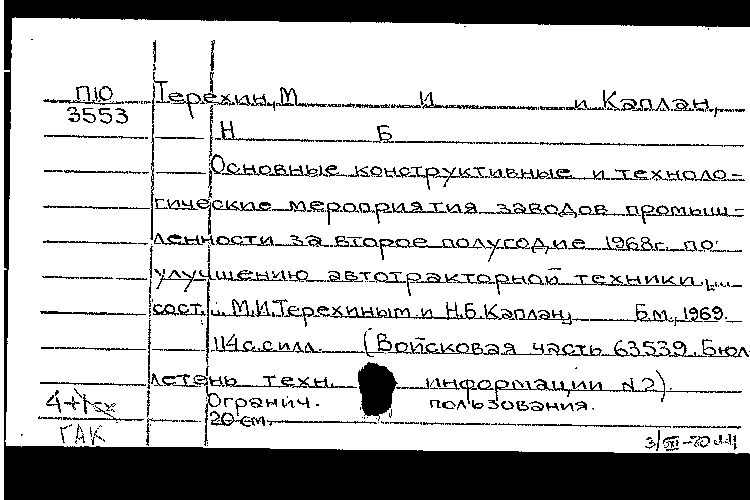 П10 Терехин, М И и Каплан,
3553
Н Б
Основные конструктивные и техноло-
гические мероприятия заводов промыш-
ленности за второе полугодие 1968г. по
улучшению автотракторной техники,
сост. М.И.Терехиным и Н.Б.Каплан, Б.м., 1969.
114с.силл. (Войсковая часть 63539. Бюл
летень техн. информации N2).
Огранич. пользования.
20 см.
ГАК